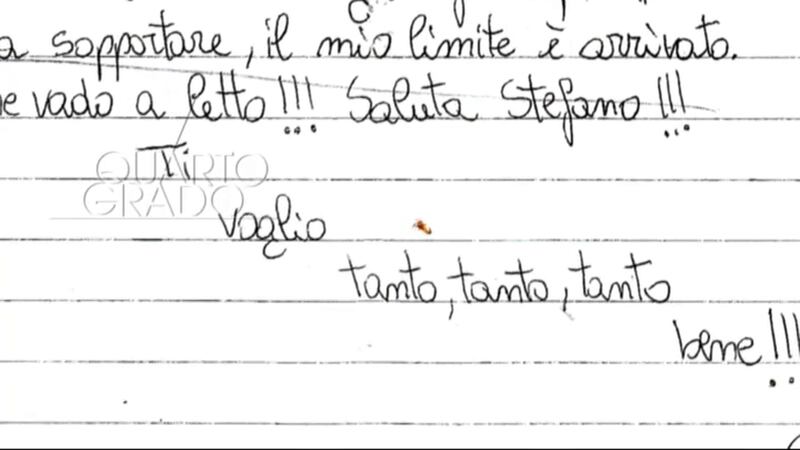 a sopportare, il mio limite è arrivato.
e vado a letto!!! Saluta Stefano!!!
Ti
QUARTO
GRADO
voglio
tanto, tanto, tanto
bene!!!